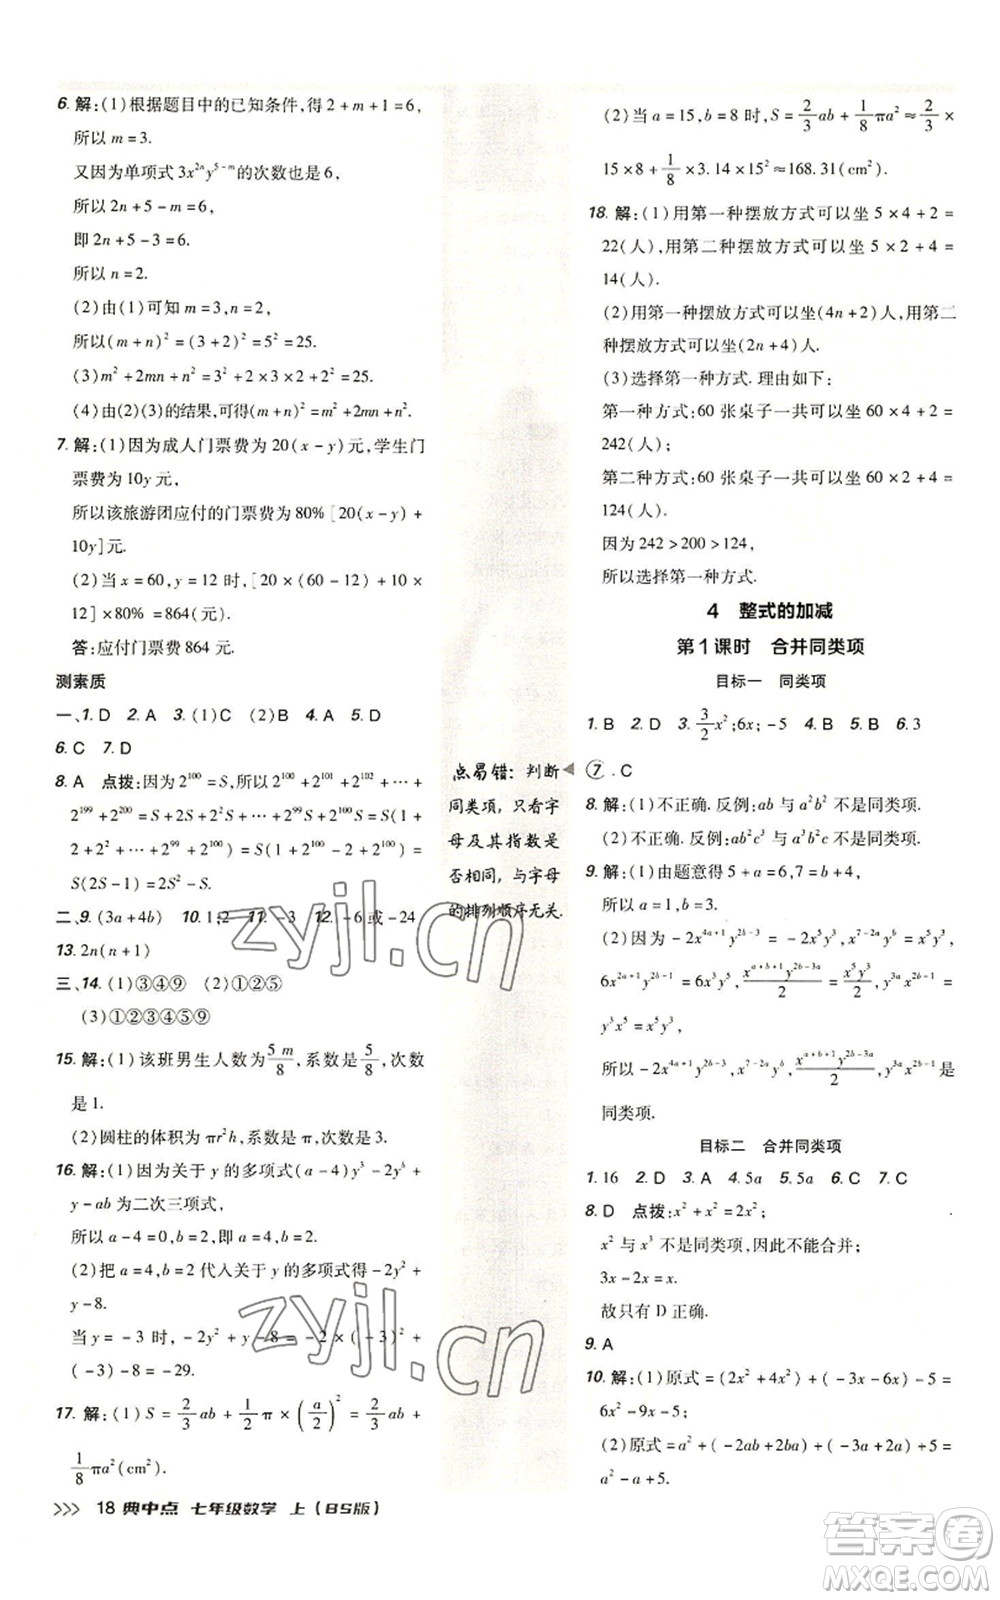 6. 解:(1)根据题目中的已知条件,得 2+m+1=6,
所以 m=3.
又因为单项式 3x²ⁿy⁵⁻ᵐ的次数也是 6,
所以 2n+5-m=6,
即 2n+5-3=6.
所以 n=2.
(2)由(1)可知 m=3,n=2,
所以(m+n)²=(3+2)²=5²=25.
(3)m²+2mn+n²=3²+2×3×2+2²=25.
(4)由(2)(3)的结果,可得(m+n)²=m²+2mn+n².
7. 解:(1)因为成人门票费为 20(x-y)元,学生门
票费为 10y 元,
所以该旅游团应付的门票费为 80%[20(x-y)+
10y]元.
(2)当 x=60,y=12 时,[20×(60-12)+10×
12]×80%=864(元).
答:应付门票费 864 元.
测素质
一、1. D 2. A 3. (1)C (2)B 4. A 5. D
6. C 7. D
8. A 点拨:因为 2¹⁰⁰=S,所以 2¹⁰⁰+2¹⁰¹+2¹⁰²+…+
2¹⁹⁹+2²⁰⁰=S+2S+2²S+…+2⁹⁹S+2¹⁰⁰S=S(1+
2+2²+…+2⁹⁹+2¹⁰⁰)=S(1+2¹⁰⁰-2+2¹⁰⁰)=
S(2S-1)=2S²-S.
二、9. (3a+4b) 10. 1;2 11. -3 12. -6或-24
13. 2n(n+1)
三、14. (1)①③④⑨ (2)①②⑤
(3)①②③④⑤⑨
15. 解:(1)该班男生人数为5/8 m,系数是5/8,次数
是 1.
(2)圆柱的体积为 πr²h,系数是 π,次数是 3.
16. 解:(1)因为关于 y 的多项式(a-4)y³-2yᵇ+
y-ab 为二次三项式,
所以 a-4=0,b=2,所以 a=4,b=2.
(2)把 a=4,b=2 代入多项式得-2y²+
y-8.
当 y=-3 时,-2y²+y-8=-2×(-3)²+
(-3)-8=-29.
17. 解:(1)S=2/3ab+1/2π×(a/2)²=2/3ab+
1/8πa²(cm²).
18 典中点 七年级数学 上(BS版)
点易错:判断
同类项,只看字
母及其指数是
否相同,与字母
的排列顺序无关.
(2)当 a=15,b=8 时,S=2/3ab+1/8πa²≈2/3×
15×8+1/8×3.14×15²≈168.31(cm²).
18. 解:(1)用第一种摆放方式可以坐 5×4+2=
22(人),用第二种摆放方式可以坐 5×2+4=
14(人).
(2)用第一种摆放方式可以坐(4n+2)人,用第二
种摆放方式可以坐(2n+4)人.
(3)选择第一种方式. 理由如下:
第一种方式:60 张桌子一共可以坐 60×4+2=
242(人);
第二种方式:60 张桌子一共可以坐 60×2+4=
124(人).
因为 242>200>124,
所以选择第一种方式.
4 整式的加减
第1课时 合并同类项
目标一 同类项
1. B 2. D 3. 3/2x²;6x;-5 4. B 5. B 6. 3
⑦. C
8. 解:(1)不正确. 反例:ab 与 a²b² 不是同类项.
(2)不正确. 反例:ab²c³ 与 a³b²c 不是同类项.
9. 解:(1)由题意得 5+a=6,7=b+4,
所以 a=1,b=3.
(2)因为-2x⁴ᵃ⁺¹y²ᵇ⁻³=-2x⁵y³,x⁷⁻²ᵃyᵇ=x⁵y⁶,
6x²ᵃ⁺¹y²ᵇ=6x³y⁶,xᵃ⁺ᵇ⁺¹y²ᵇ⁻³ᵃ/2=x⁵y³/2,y³ᵃx²ᵇ⁻¹=
y³x⁵,
所以-2x⁴ᵃ⁺¹y²ᵇ⁻³,xᵃ⁺ᵇ⁺¹y²ᵇ⁻³ᵃ/2,y³ᵃx²ᵇ⁻¹是
同类项.
目标二 合并同类项
1. 16 2. D 3. A 4. 5a 5. 5a 6. C 7. C
8. D 点拨:x²+x²=2x²;
x² 与 x³ 不是同类项,因此不能合并;
3x-2x=x.
故只有 D 正确.
9. A
10. 解:(1)原式=(2x²+4x²)+(-3x-6x)-5=
6x²-9x-5;
(2)原式=a²+(-2ab+2ba)+(-3a+2a)+5=
a²-a+5.
zyjl.cn
zyjl.cn
答案圈
MXQE.COM